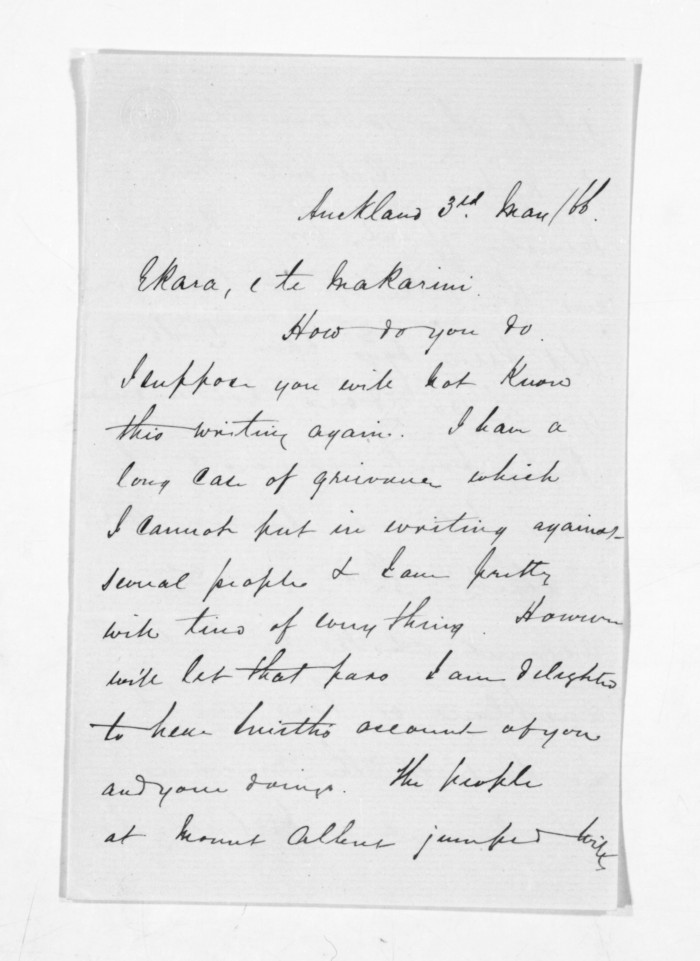 Auckland 3rd. May/66.
Ekara, e te Makarini.
How do you do.
I suppose you will not know
this writing again. I have a
long case of grievance which
I cannot put in writing against
several people & I am pretty
well tired of everything. However
will let that pass I am delighted
to hear account of you
and your doings. The people
at Mount Albert jumped with